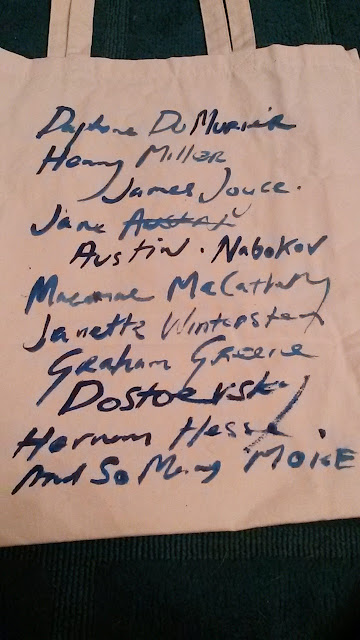 Daphne Du Murier
Henry Miller
James Joyce.
Jane
Austin. Nabokov
McCathy
Janette Winterston
Graham Greene
Dostoevsky
Herman Hesse.
And So Many MORE